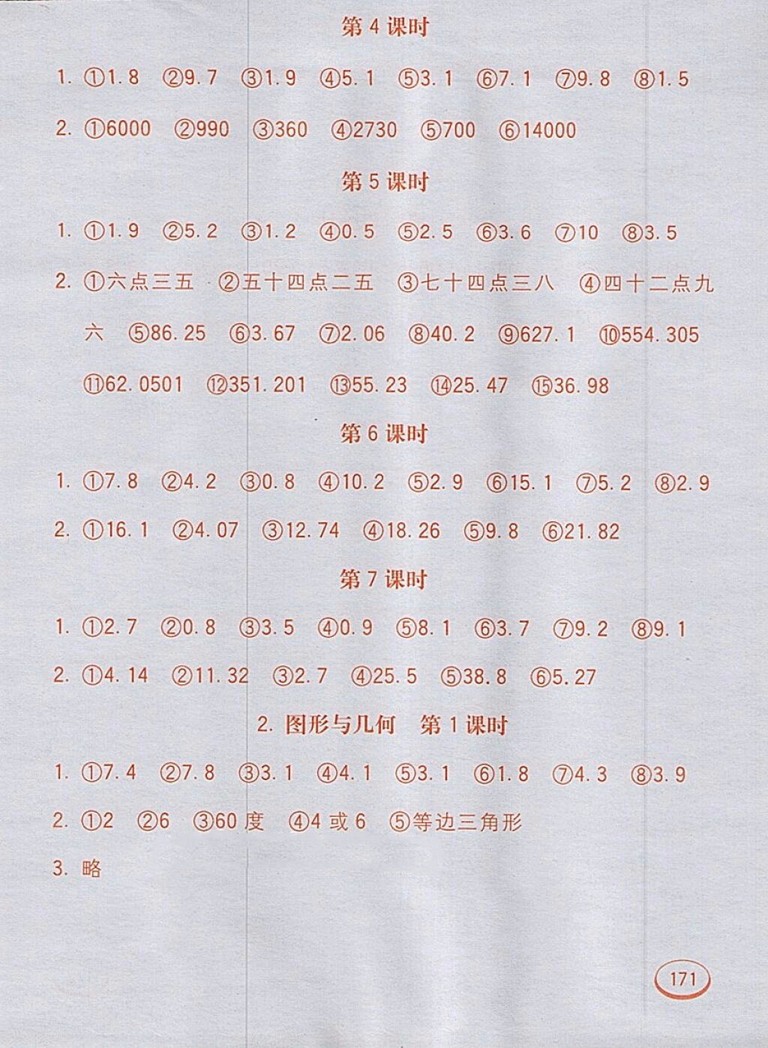 第 4 课时
1. ①1.8 ②9.7 ③1.9 ④5.1 ⑤3.1 ⑥7.1 ⑦9.8 ⑧1.5
2. ①6000 ②990 ③360 ④2730 ⑤700 ⑥14000
第 5 课时
1. ①1.9 ②5.2 ③1.2 ④0.5 ⑤2.5 ⑥3.6 ⑦10 ⑧3.5
2. ①六点三五 ②五十四点二五 ③七十四点三八 ④四十二点九
六 ⑤86.25 ⑥3.67 ⑦2.06 ⑧40.2 ⑨627.1 ⑩554.305
⑪62.0501 ⑫351.201 ⑬55.23 ⑭25.47 ⑮36.98
第 6 课时
1. ①7.8 ②4.2 ③0.8 ④10.2 ⑤2.9 ⑥15.1 ⑦5.2 ⑧2.9
2. ①16.1 ②4.07 ③12.74 ④18.26 ⑤9.8 ⑥21.82
第 7 课时
1. ①2.7 ②0.8 ③3.5 ④0.9 ⑤8.1 ⑥3.7 ⑦9.2 ⑧9.1
2. ①4.14 ②11.32 ③2.7 ④25.5 ⑤38.8 ⑥5.27
2. 图形与几何 第 1 课时
1. ①7.4 ②7.8 ③3.1 ④4.1 ⑤3.1 ⑥1.8 ⑦4.3 ⑧3.9
2. ①2 ②6 ③60 度 ④4 或 6 ⑤等边三角形
3. 略
171